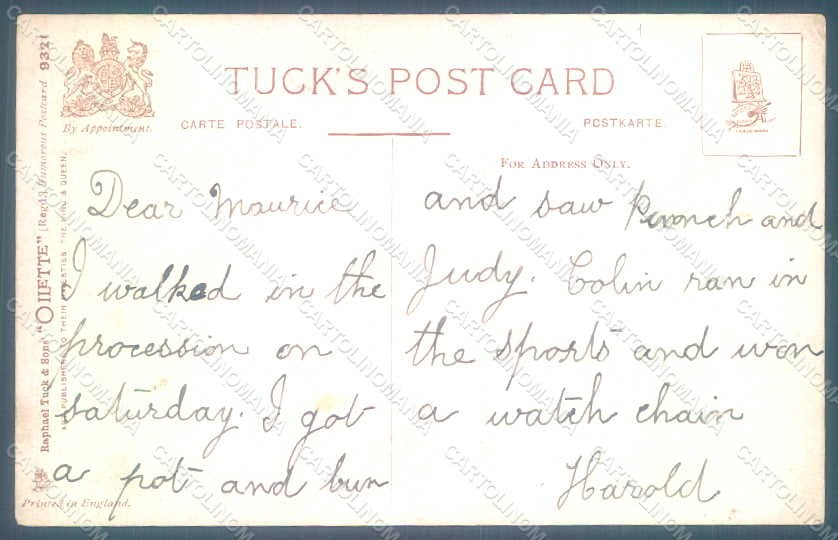 TUCK'S POST CARD
By Appointment.
CARTE POSTALE.
POSTKARTE.
FOR ADDRESS ONLY.
Raphael Tuck & Sons' "OILETTE" [Regd.] Humorous Postcard 932
THE KING & QUEEN.
Printed in England.
Dear Maurice
I walked in the
procession on
saturday. I got
a pot and bun
and saw Punch and
Judy. Colin ran in
the sports and won
a watch chain
Harold
CARTOLINOMANIA